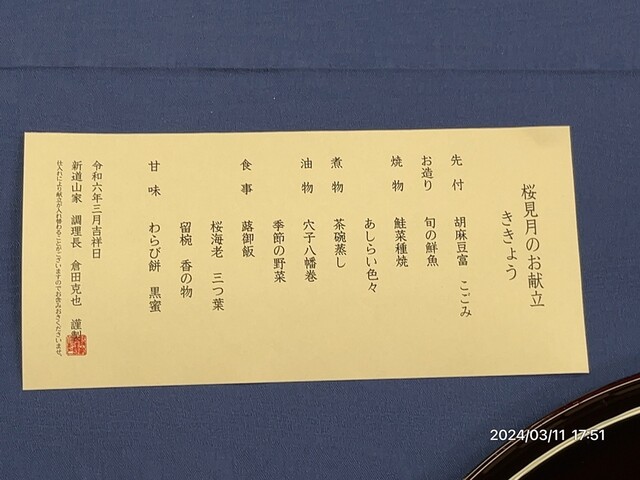 桜見月のお献立
ききょう
先付 胡麻豆富 こごみ
お造り 旬の鮮魚
焼物 鮭菜種焼
あしらい色々
煮物 茶碗蒸し
油物 穴子八幡巻
季節の野菜
食事 蕗御飯
桜海老 三つ葉
留椀 香の物
甘味 わらび餅 黒蜜
令和六年三月吉祥日
新道山家 調理長 倉田克也 謹製
仕入れにより献立が入れ替わることがございますのでお含みおきくださいませ。
2024/03/11 17:51